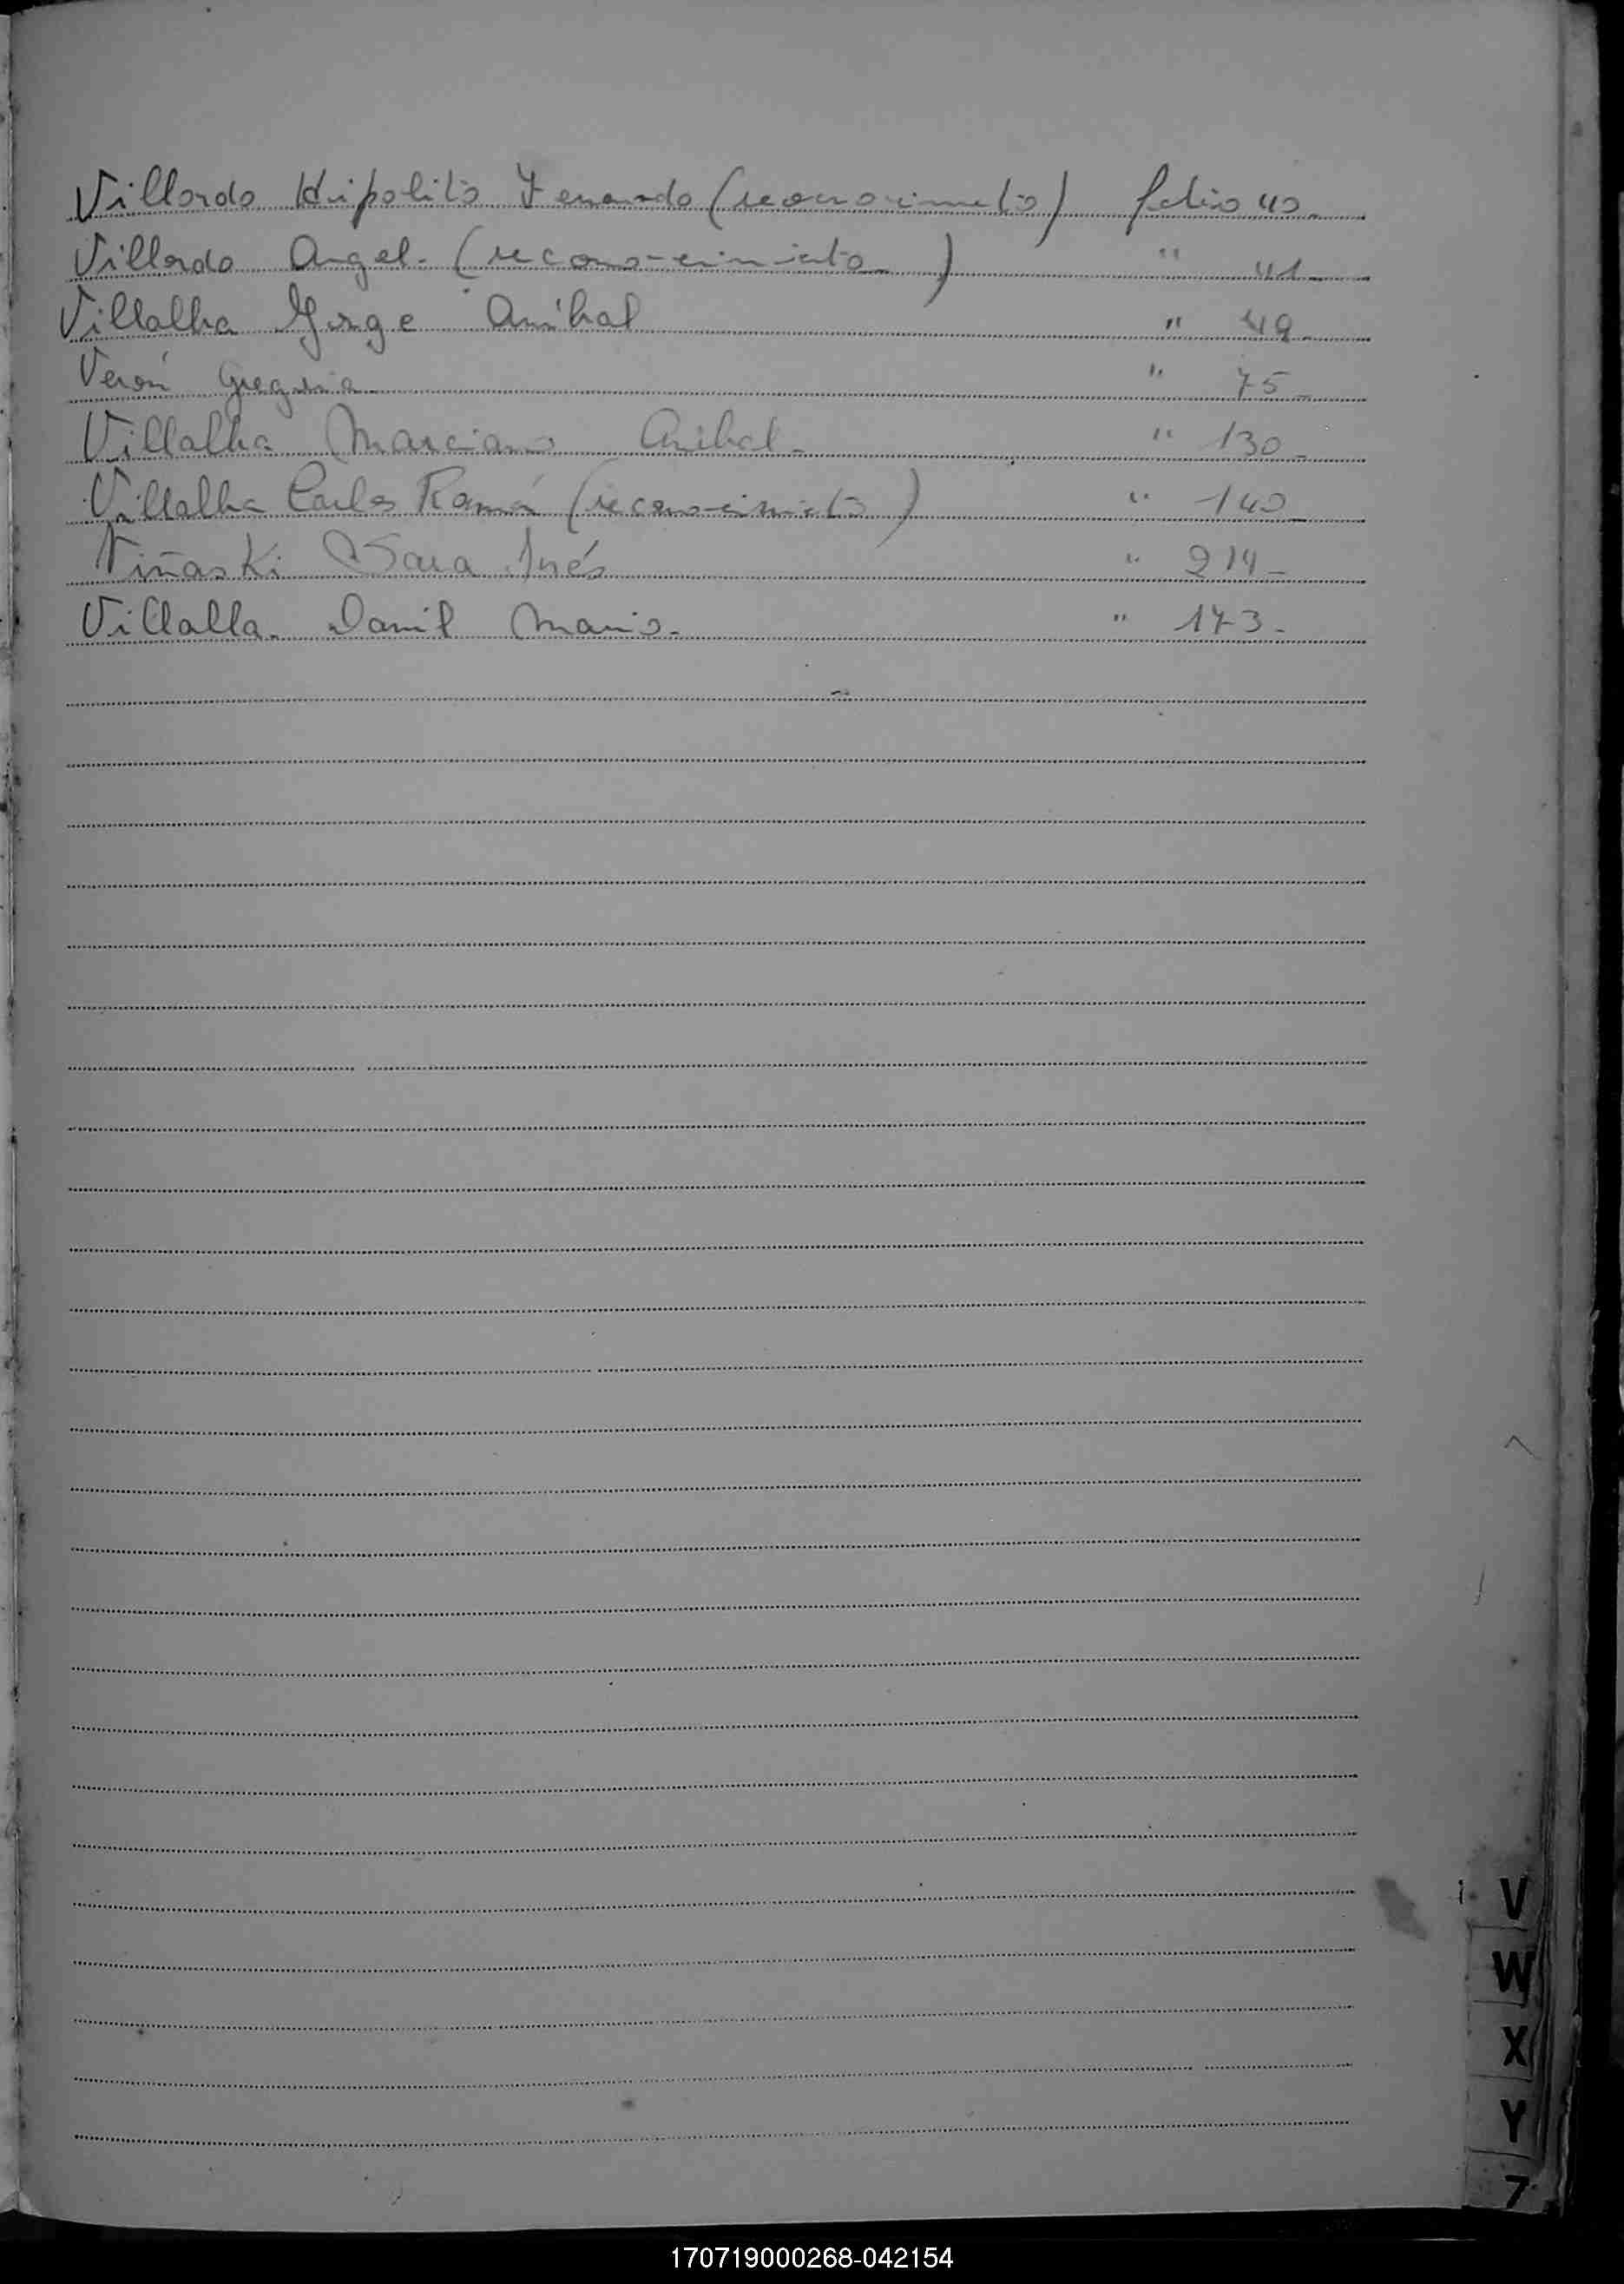 Villordo Hipolito Fernando (reconocimiento) folio 40
Villordo Angel - (reconocimiento) " 41
Villalba Jorge Anibal " 49
Verón Gregoria " 75 -
Villalba Marciano Anibal - " 130 -
Villalba Carlos Ramón (reconocimiento) " 140
Viñaski Sara Inés " 214 -
Villalba Danil Mario - " 173 -
V
W
X
Y
Z
170719000268-042154